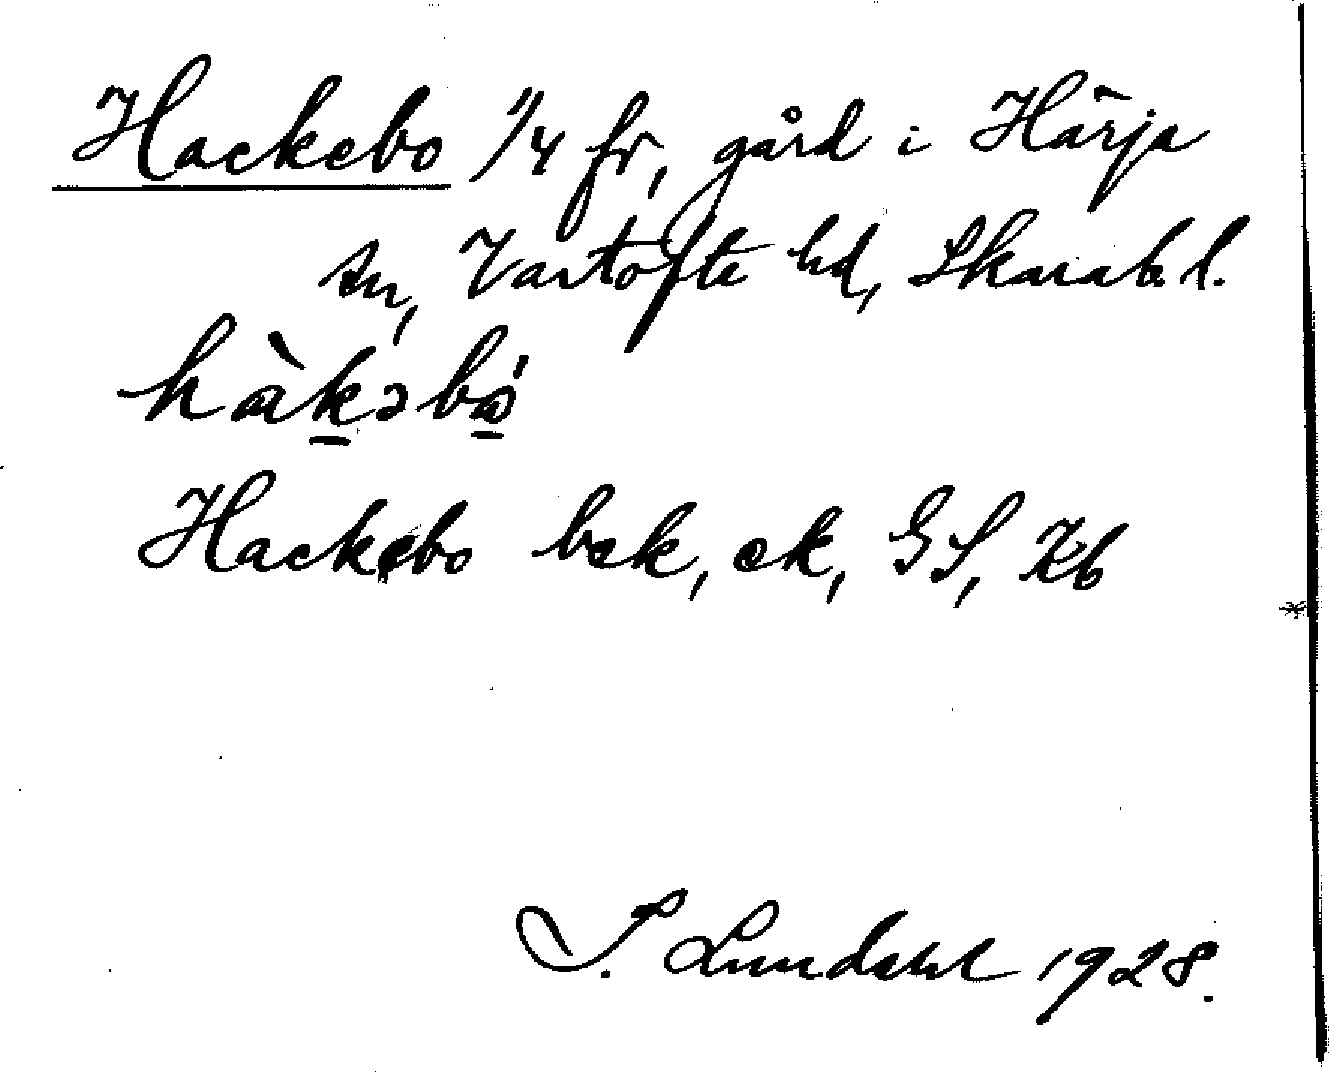 Hackebo 1/4 fr, gård i Härja
sn, Vartofte hd, Skarab. l.
hàkəbó
Hackebo bek, ek, GS, Kb
I. Lundahl 1928.